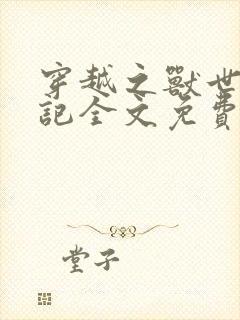 穿越之獸世
記全文免費
堂子